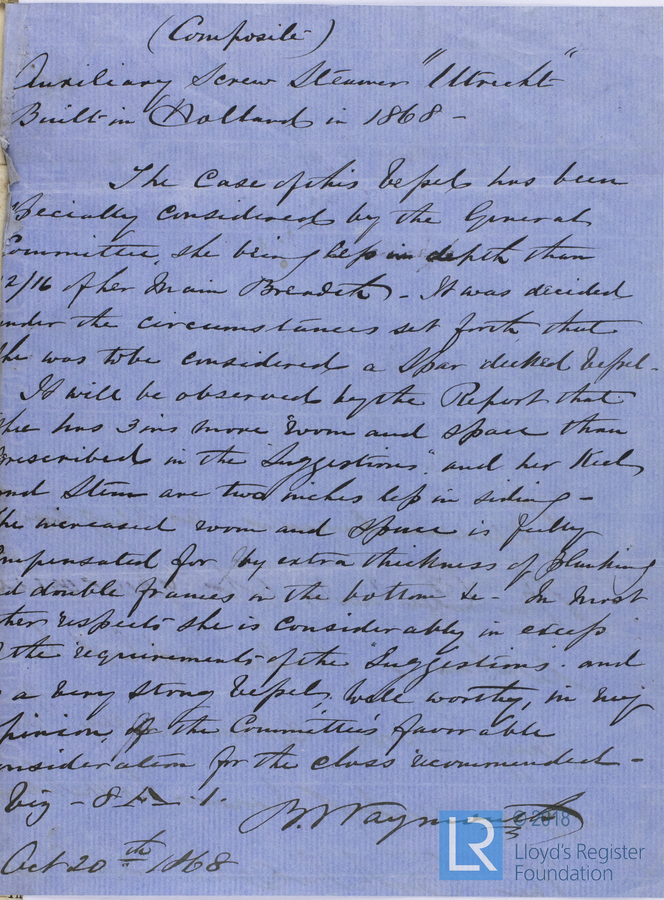 (Composite)
Auxiliary Screw Steamer "Utrecht"
Built in Holland in 1868 -
The Case of this Vessel has been
Specially considered by the General
Committee, she being less in depth than
12/16 of her Main Breadth - It was decided
under the circumstances set forth that
she was to be considered a Spar decked Vessel -
It will be observed by the Report that
she has 3 ins more room and space than
prescribed in the "Suggestions" and her Keel
and Stem are two inches less in siding -
The increased room and space is fully
compensated for by extra thickness of Planking
and double frames in the bottom &c - In most
other respects she is considerably in excess
of the requirements of the "Suggestions" and
is a very strong Vessel, well worthy, in my
opinion, of the Committee's favorable
consideration for the class recommended -
Viz - 8 A 1.
Oct 20th 1868
© 2018
LR
Lloyd's Register
Foundation